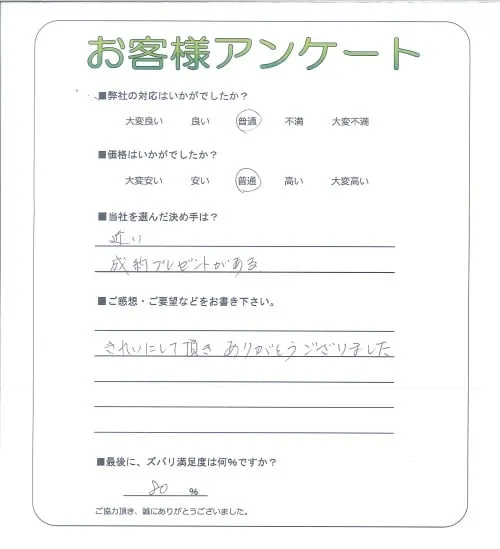 お客様アンケート
■弊社の対応はいかがでしたか？
大変良い 良い 普通 不満 大変不満
■価格はいかがでしたか？
大変安い 安い 普通 高い 大変高い
■当社を選んだ決め手は？
近い
成約プレゼントがある
■ご感想・ご要望などをお書き下さい。
きれいにして頂き ありがとうございました
■最後に、ズバリ満足度は何%ですか？
80 %
ご協力頂き、誠にありがとうございました。